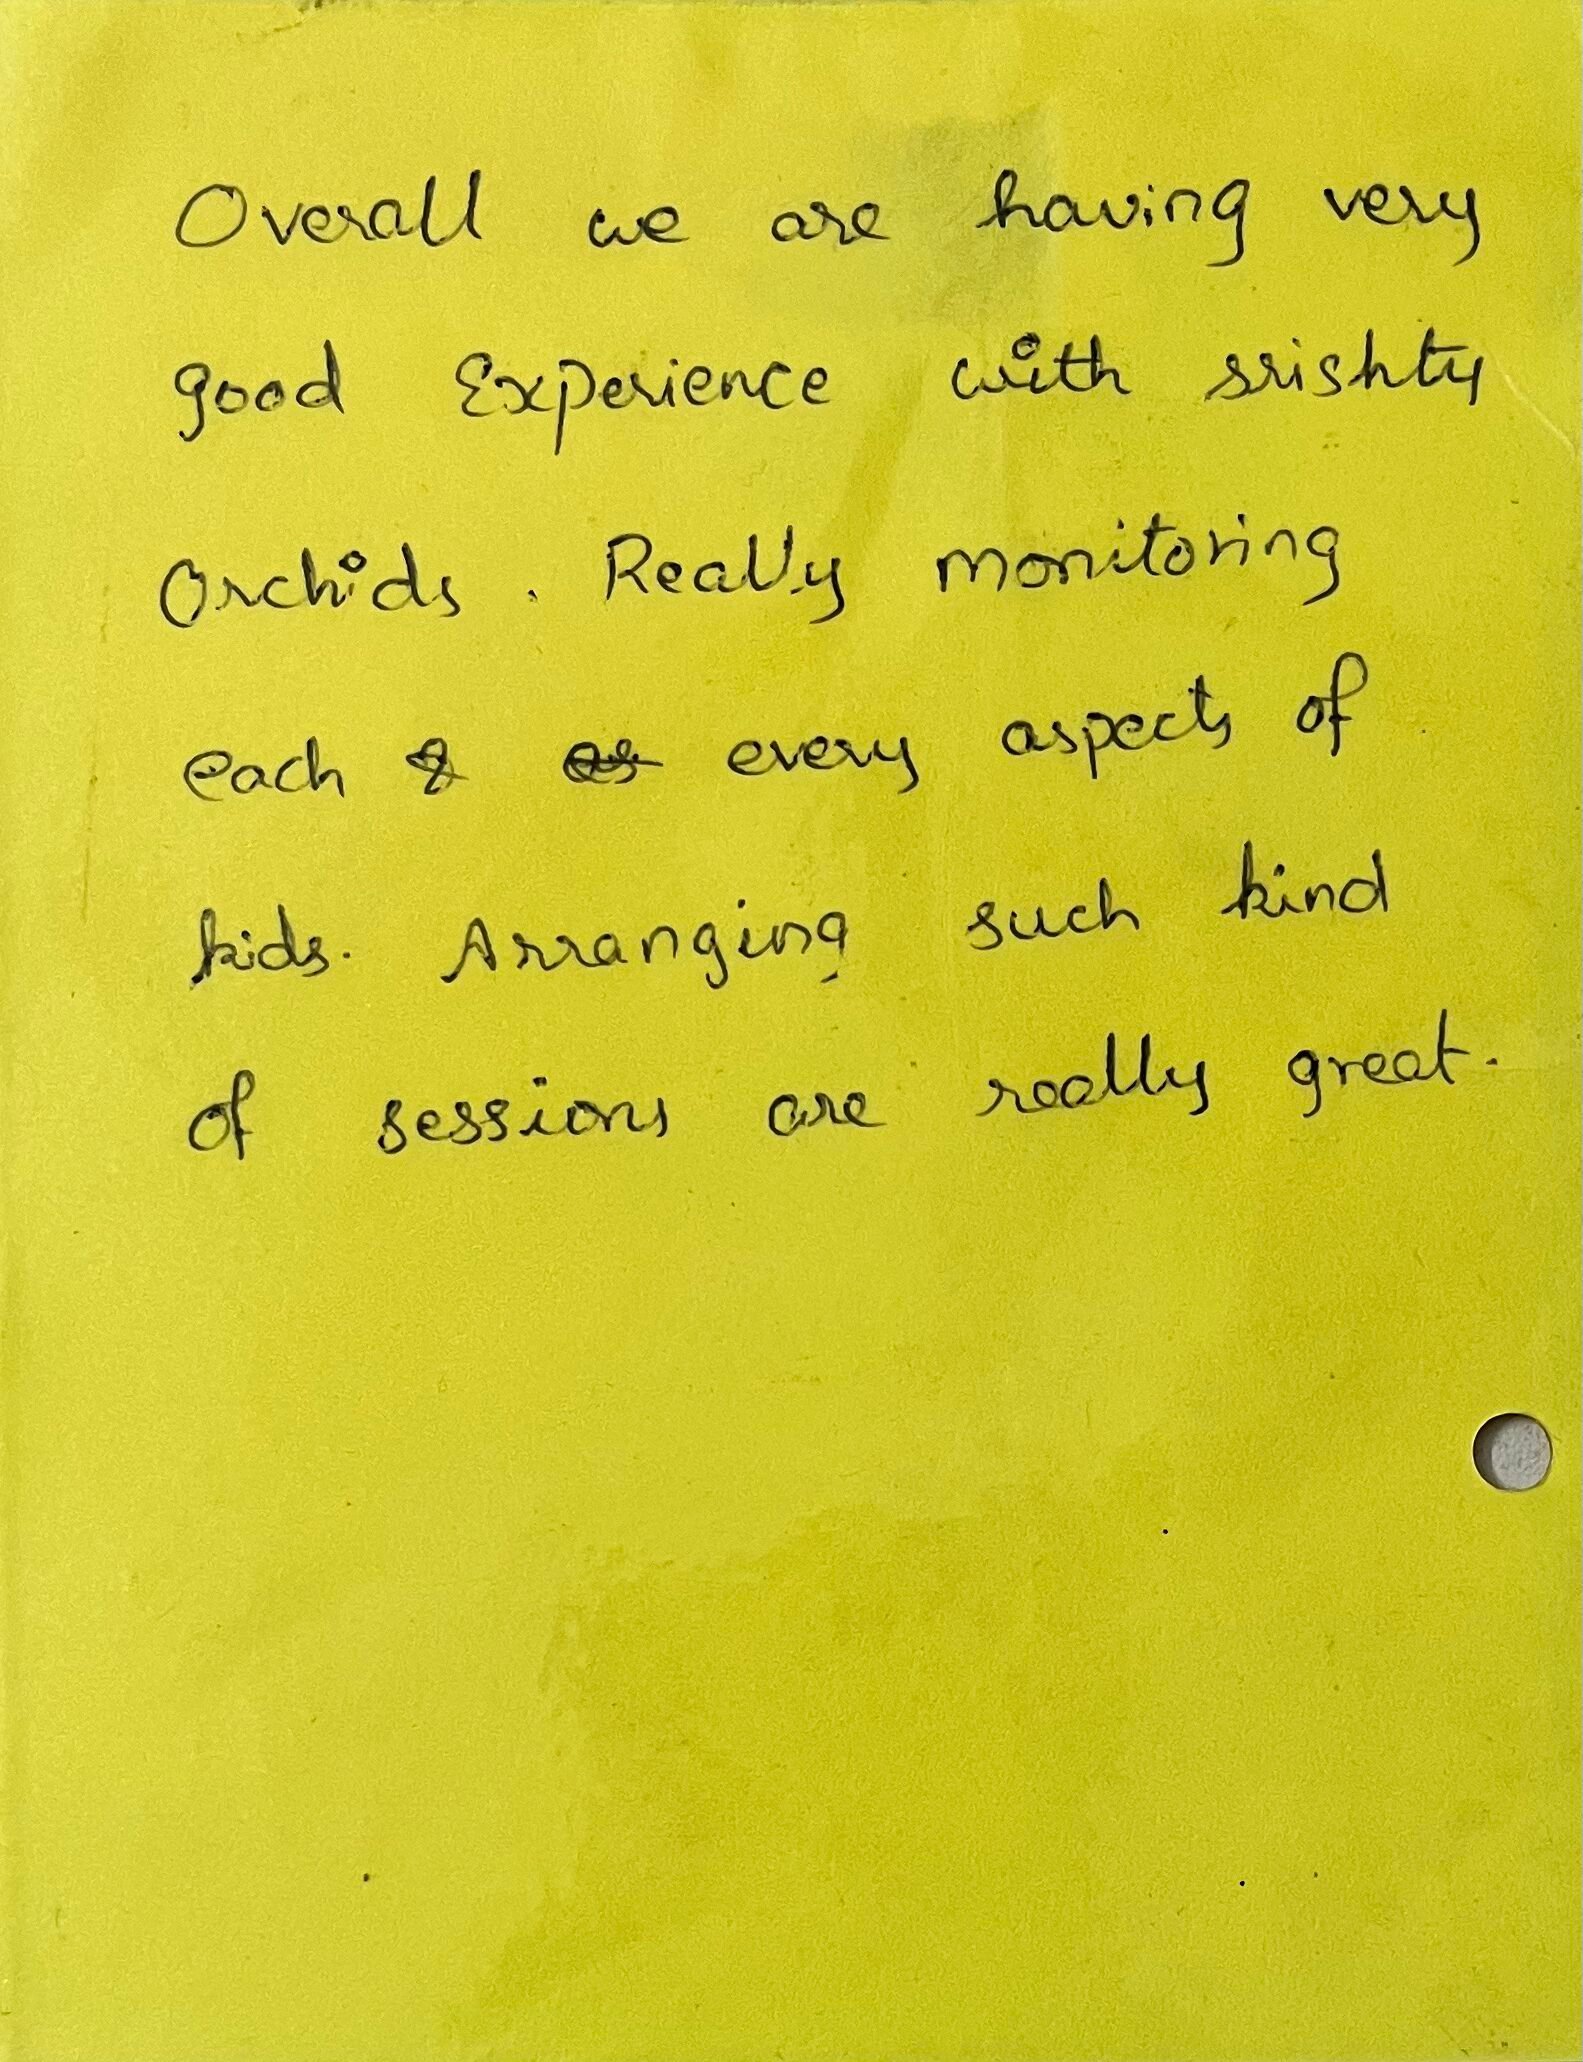 Overall we are having very
good Experience with srishty
Orchids. Really monitoring
each & every aspects of
kids. Arranging such kind
of sessions are really great.